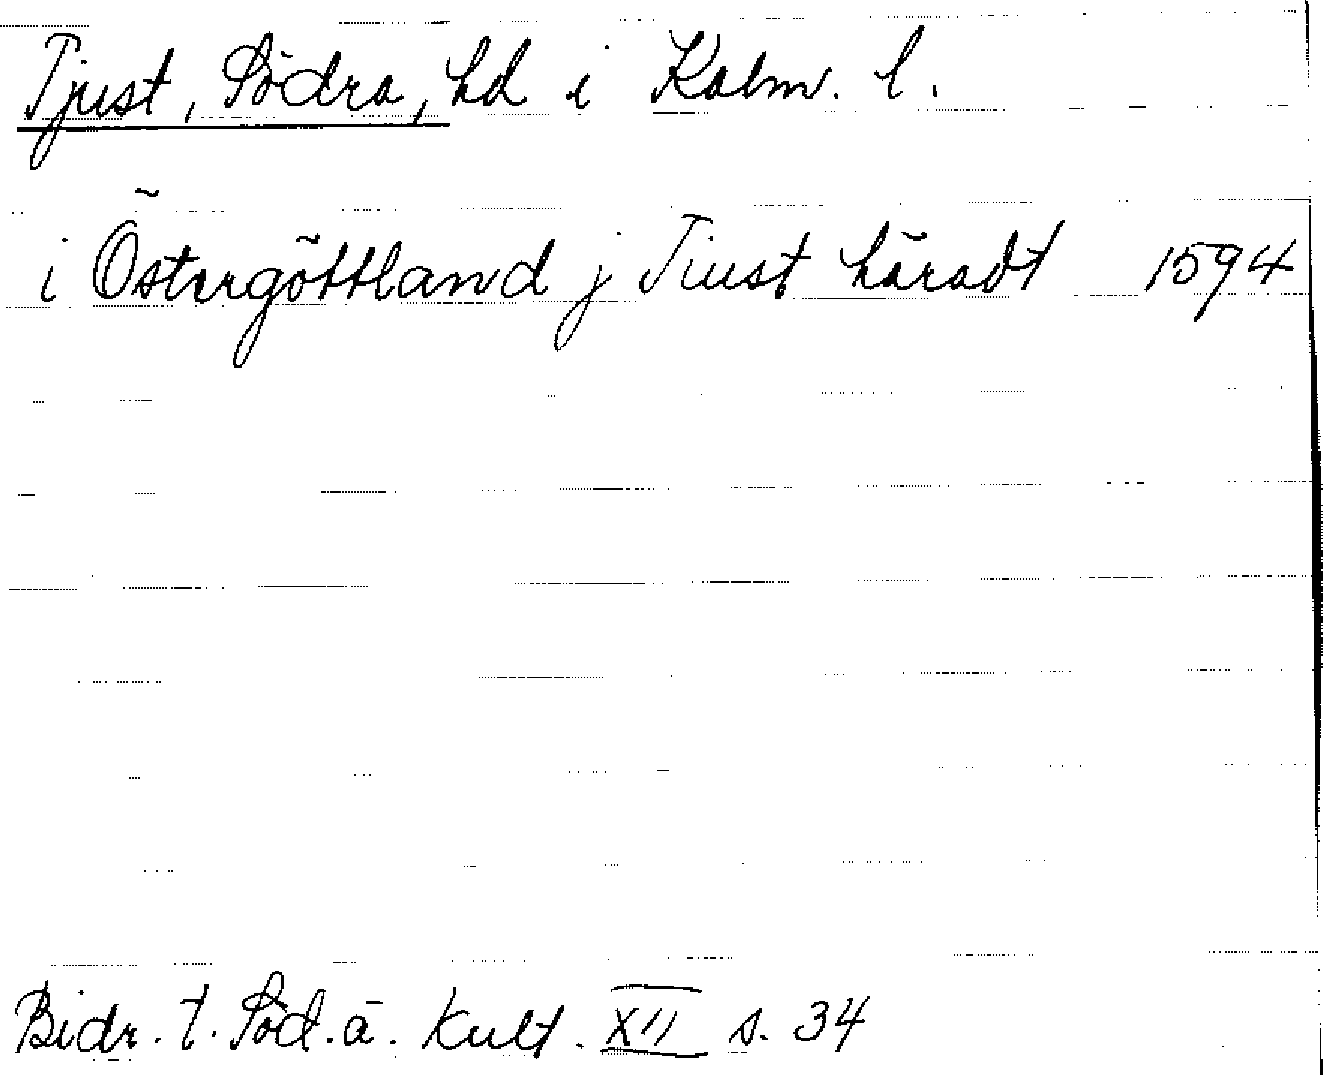 Tjust, Södra, hd i Kalm. l.
i Östergöttland j Tiust häradt 1594
Bidr. t. Söd. ä. Kult. XII s. 34